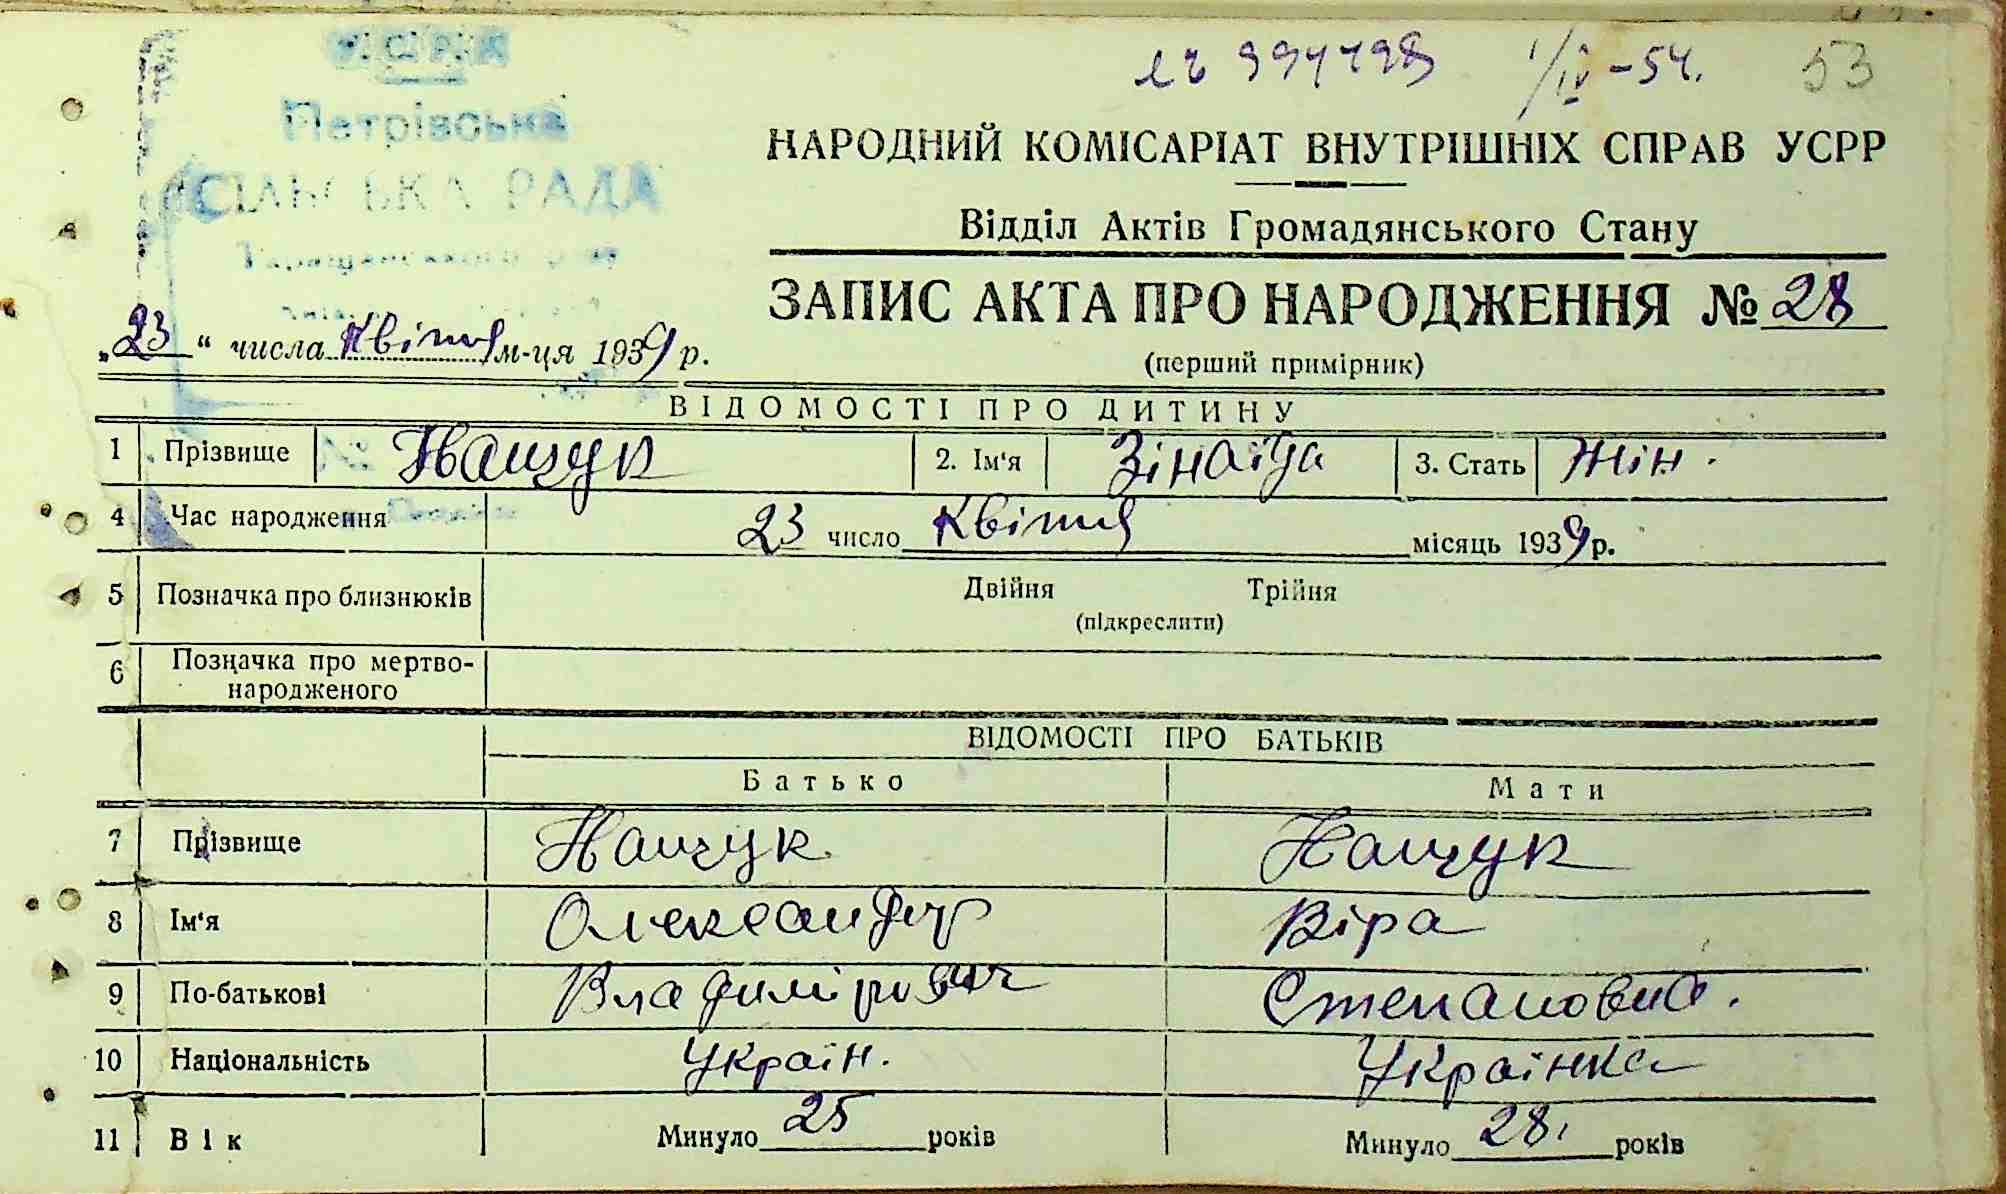 53
1/IV-54.
Петрівська
СІЛЬСЬКА РАДА
НАРОДНИЙ КОМІСАРІАТ ВНУТРІШНІХ СПРАВ УСРР
Відділ Актів Громадянського Стану
ЗАПИС АКТА ПРО НАРОДЖЕННЯ № 28
(перший примірник)
„23“ числа Квітня м-ця 1939 р.
ВІДОМОСТІ ПРО ДИТИНУ
1 Прізвище Нащук 2. Ім'я Зінаїда 3. Стать Жін.
4 Час народження 23 число Квітня місяць 1939 р.
5 Позначка про близнюків Двійня Трійня
(підкреслити)
6 Позначка про мертво-
народженого
ВІДОМОСТІ ПРО БАТЬКІВ
Батько Мати
7 Прізвище Нащук Нащук
8 Ім'я Олександр Віра
9 По-батькові Владимірович Степановна.
10 Національність Україн. Українка
11 Вік Минуло 25 років Минуло 28 років